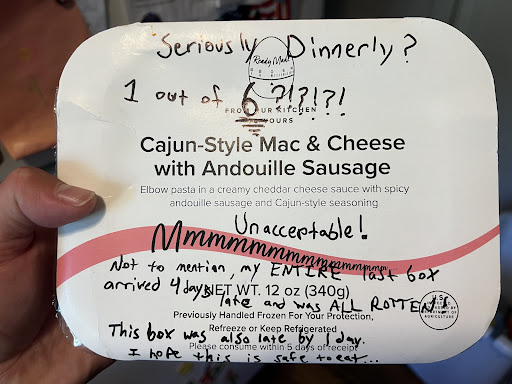 Seriously Dinnerly?
Ready Made!
1 out of 6 ?!?!?!
FROM OUR KITCHEN
TO YOURS
Cajun-Style Mac & Cheese
with Andouille Sausage
Elbow pasta in a creamy cheddar cheese sauce with spicy
andouille sausage and Cajun-style seasoning
Unacceptable!
Mmmmmmmmmmmmmmmm
Not to mention, my ENTIRE last box
arrived 4 days late and was ALL ROTTEN!!
NET WT. 12 oz (340g)
Previously Handled Frozen For Your Protection,
Refreeze or Keep Refrigerated
This box was also late by 1 day.
Please consume within 5 days of receipt
I hope this is safe to eat...